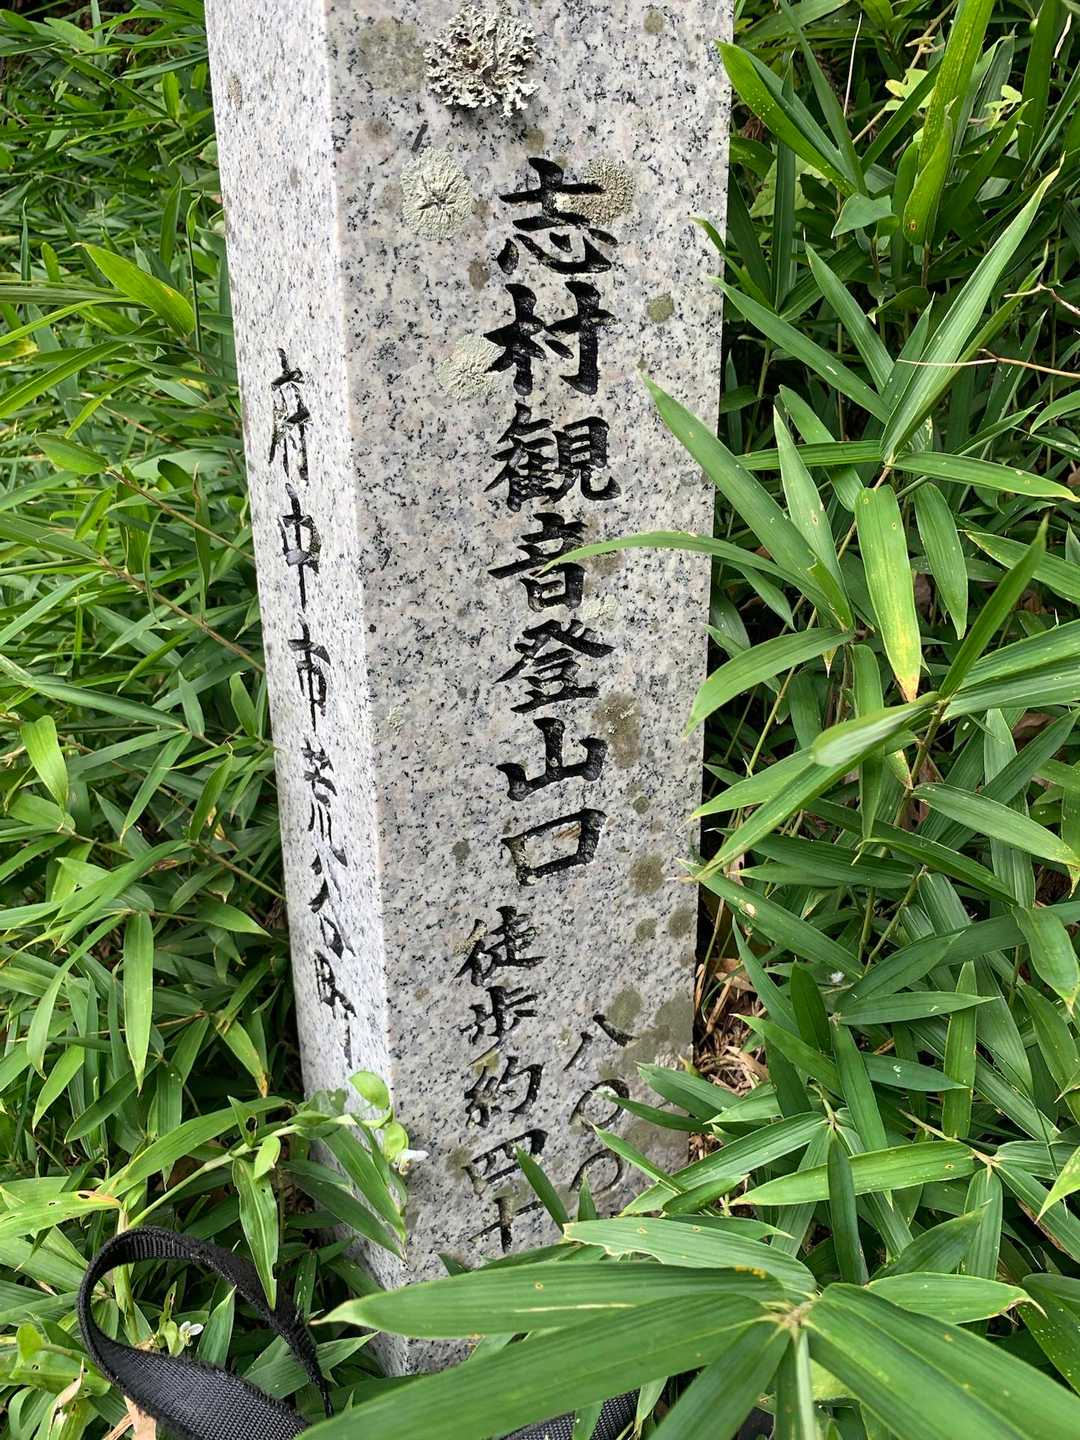 志村観音登山口
八〇〇
徒歩約四十
府中市荒谷町